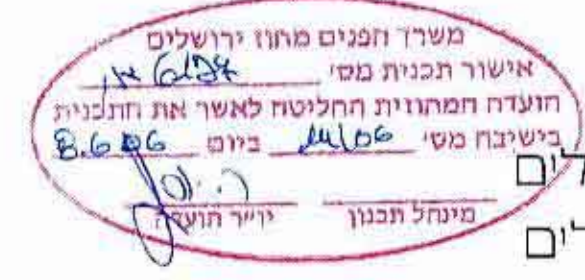 משרד הפנים מחוז ירושלים
אישור תכנית מס'
הועדה המחוזית החליטה לאשר את התכנית
בישיבה מס' 11/06 ביום 8.6.06
לים
מינהל תכנון יו"ר הועדה
לים